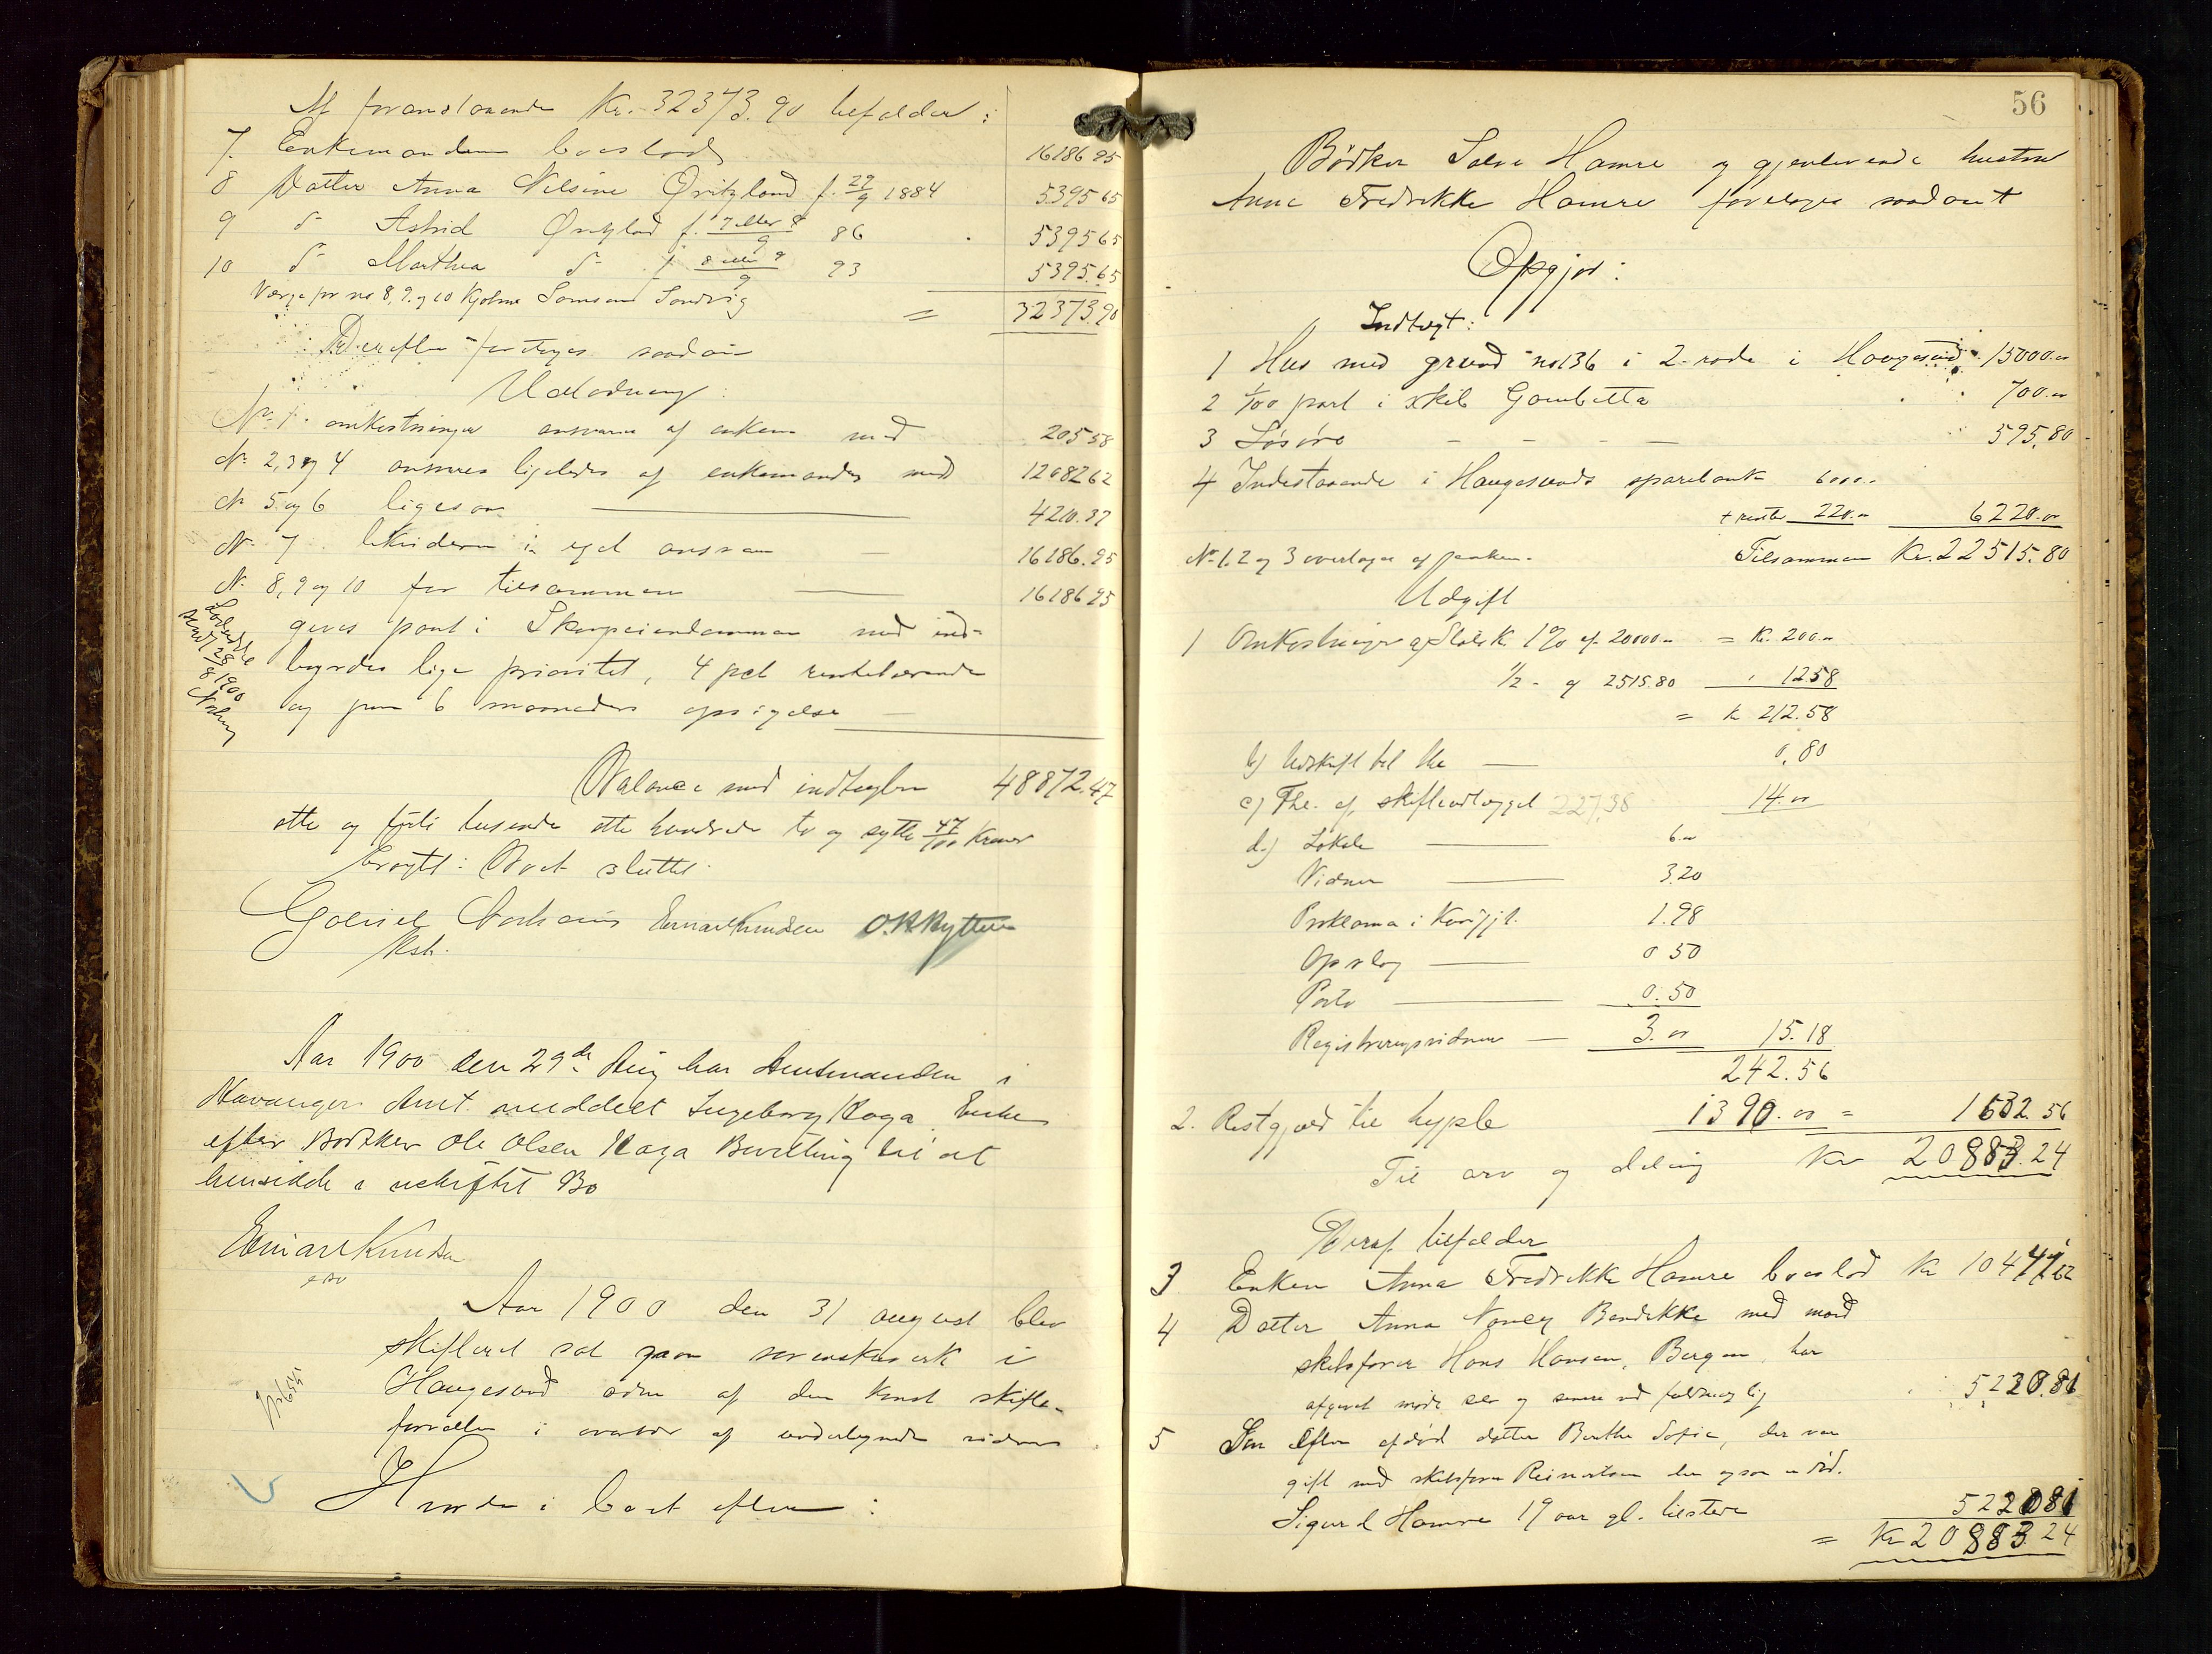 Af foranstaaende Kr. 32373.90 tilfalder:
7. Enkemanden boeslod 16186 95
8 Datter Anna Nilsine Qvitzland f. 29/9 1884 5395 65
9 d- Astrid f. 7 eller 8/9 86 5395 65
10 d- Martha d- f. 8 eller 9/9 93 5395.65
Værge for no 8, 9. og 10 Samson Sandvig
= 32373.90
Derefter foretoges saadan
Udlodning:
No 1. omkostninger ansvares af enkem. med 205 58
No 2, 3 og 4 ansvares ligeledes af enkemanden med 12082 62
No 5 og 6 ligesaa 4210.37
No 7. beholdes i eget ansvar 16186.95
No 8, 9 og 10 for tilsammen 16186 95
gives pant i med ind-
byrdes lige prioritet, 4 pct rentebærende
og paa 6 maaneders opsigelse
28/8 1900
Balance med indtægten 48872.47
otte og førti tusende otte hundrede to og sytti 47/100 Kroner
Boet sluttet.
Einar Knudsen O. K. Rytter
Kst.
Aar 1900 den 29de Aug har Amtmanden i
Stavanger Amt meddelt Ingeborg Haga Enke
efter Bødker Ole Olsen Haga Bevilling til at
hensidde i uskiftet Bo
Einar Knudsen
Aar 1900 den 31 august blev
skifteret sat paa sorenskriverk. i
Haugesund adm af den konst skifte-
forvalter i overvær af undertegnede vidner.
Hvorda i boet efter:
56
Bødker Salve Hamre og gjenlevende hustru
Anne Fredrikke Hamre foretoges saadant
Opgjør:
Indtægt:
1 Hus med grund no 136 i 2. rode i Haugesund 15000.00
2 1/100 part i skib Gambetta 700.00
3 Løsøre - - - 595.80
4 Indestaaende i Haugesunds sparebank 6000.-
+ renter 220.00 6220.00
No 1. 2 og 3 overtages af enken. Tilsammen Kr. 22515.80
Udgift
1 Omkostninger a) Skifsk 1% af 20000.- = Kr. 200.00
1/2 - af 2515.80 12.58
= Kr 212.58
b) Udskrift til 0.80
c) af skifteudlægget 227,38 14.00
d.) Lokale 6.00
Vidner 3.20
Proklama i 1.98
Opslag 0 50
Porto 0.50
Registreringsvidner 3.00 15.18
242.56
2. Restgjæld til hypbk 1390.00 = 1632.56
Til arv og deling Kr 20883.24
Deraf tilfalder
3 Enken Anna Fredrikke Hamre boeslod Kr 10441.62
4 Datter Anna Nancy Bendikke med mand
skibsfører Hans Hansen, Bergen, har
afgivet møde selv og senere ved fuldmægtig 5220.81
5 Søn efter afdød datter Berthe Sofie, der var
gift med skibsfører Reinertsen der ogsaa er død.
Sigurd Hamre 19 aar gl. tilstede 5220.81
= Kr 20883.24